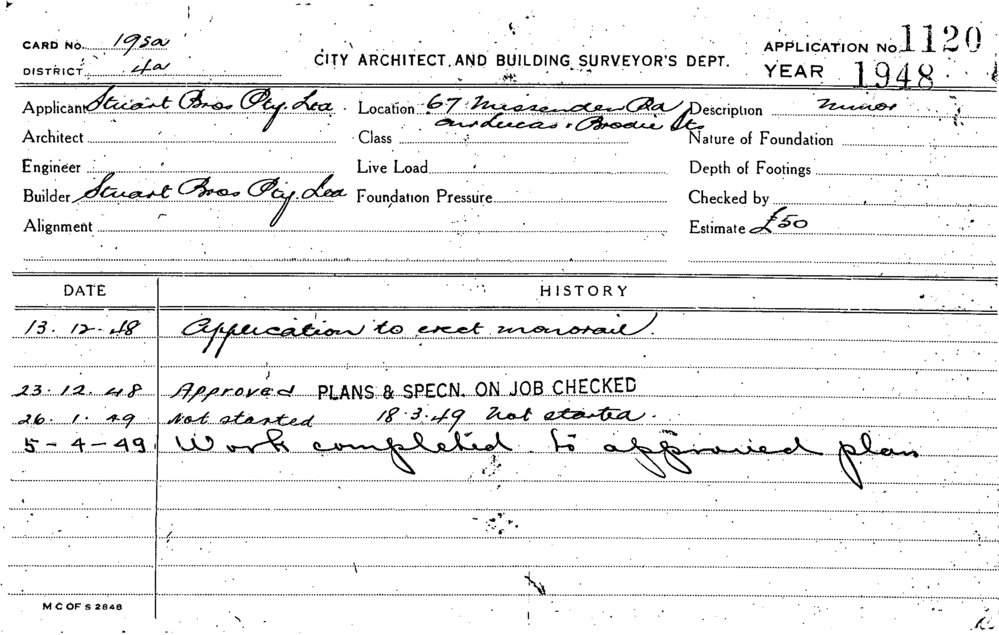 CARD No. 195a
DISTRICT 4a
CITY ARCHITECT AND BUILDING SURVEYOR'S DEPT.
APPLICATION No. 1120
YEAR 1948
Applicant Stuart Bros Pty. Ltd. Location 67 Missenden Rd Description Minor
Lucas & Brodie Sts
Architect Class Nature of Foundation
Engineer Live Load Depth of Footings
Builder Stuart Bros Pty. Ltd Foundation Pressure Checked by
Alignment Estimate £50
DATE HISTORY
13.12.48 Application to erect monorail.
23.12.48 Approved PLANS & SPECN. ON JOB CHECKED
26.1.49 Not started 18.3.49 Not started.
5-4-49 Work completed to approved plan
M C OF S 2848